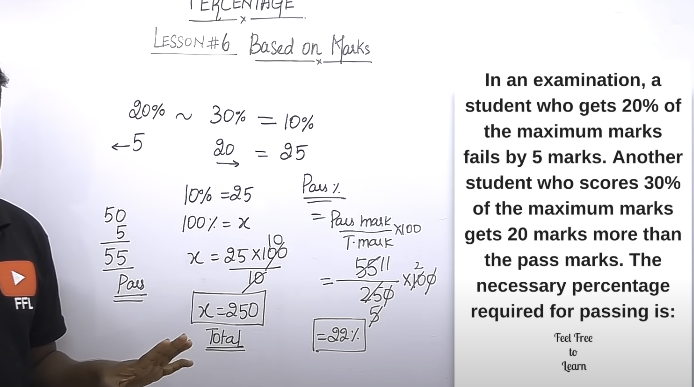 PERCENTAGE
LESSON#6 Based on Marks
20% ~ 30% = 10%
←5 20 = 25
10% = 25
100% = x
x = 25 × 100
10
10
x = 250
Total
50
5
55
Pass
Pass %
= Pass mark × 100
T. mark
= 55 11 × 100 2
250
5
= 22%
FFL
In an examination, a
student who gets 20% of
the maximum marks
fails by 5 marks. Another
student who scores 30%
of the maximum marks
gets 20 marks more than
the pass marks. The
necessary percentage
required for passing is:
Feel Free
to
Learn